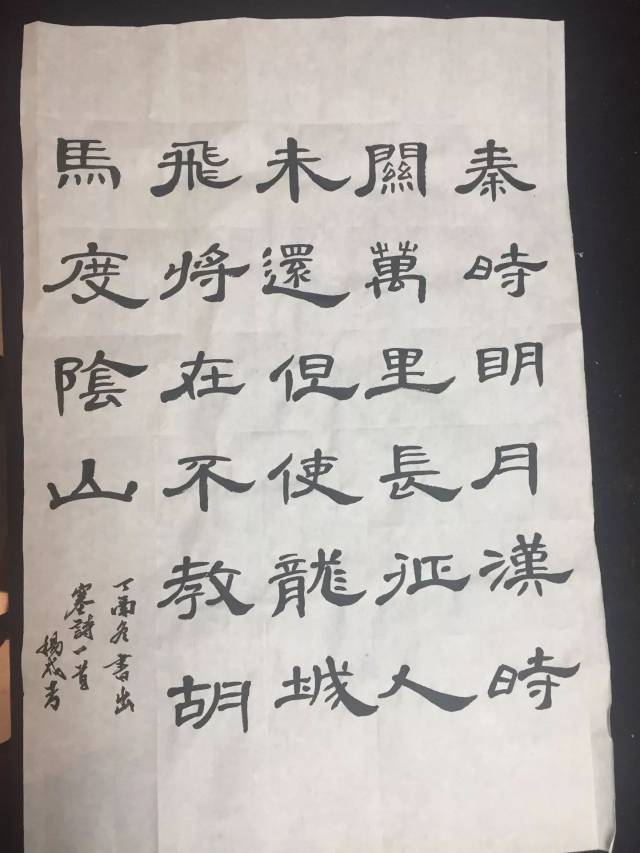 秦時明月漢時
關萬里長征人
未還但使龍城
飛將在不教胡
馬度陰山
丁酉冬書出
塞詩一首
楊成